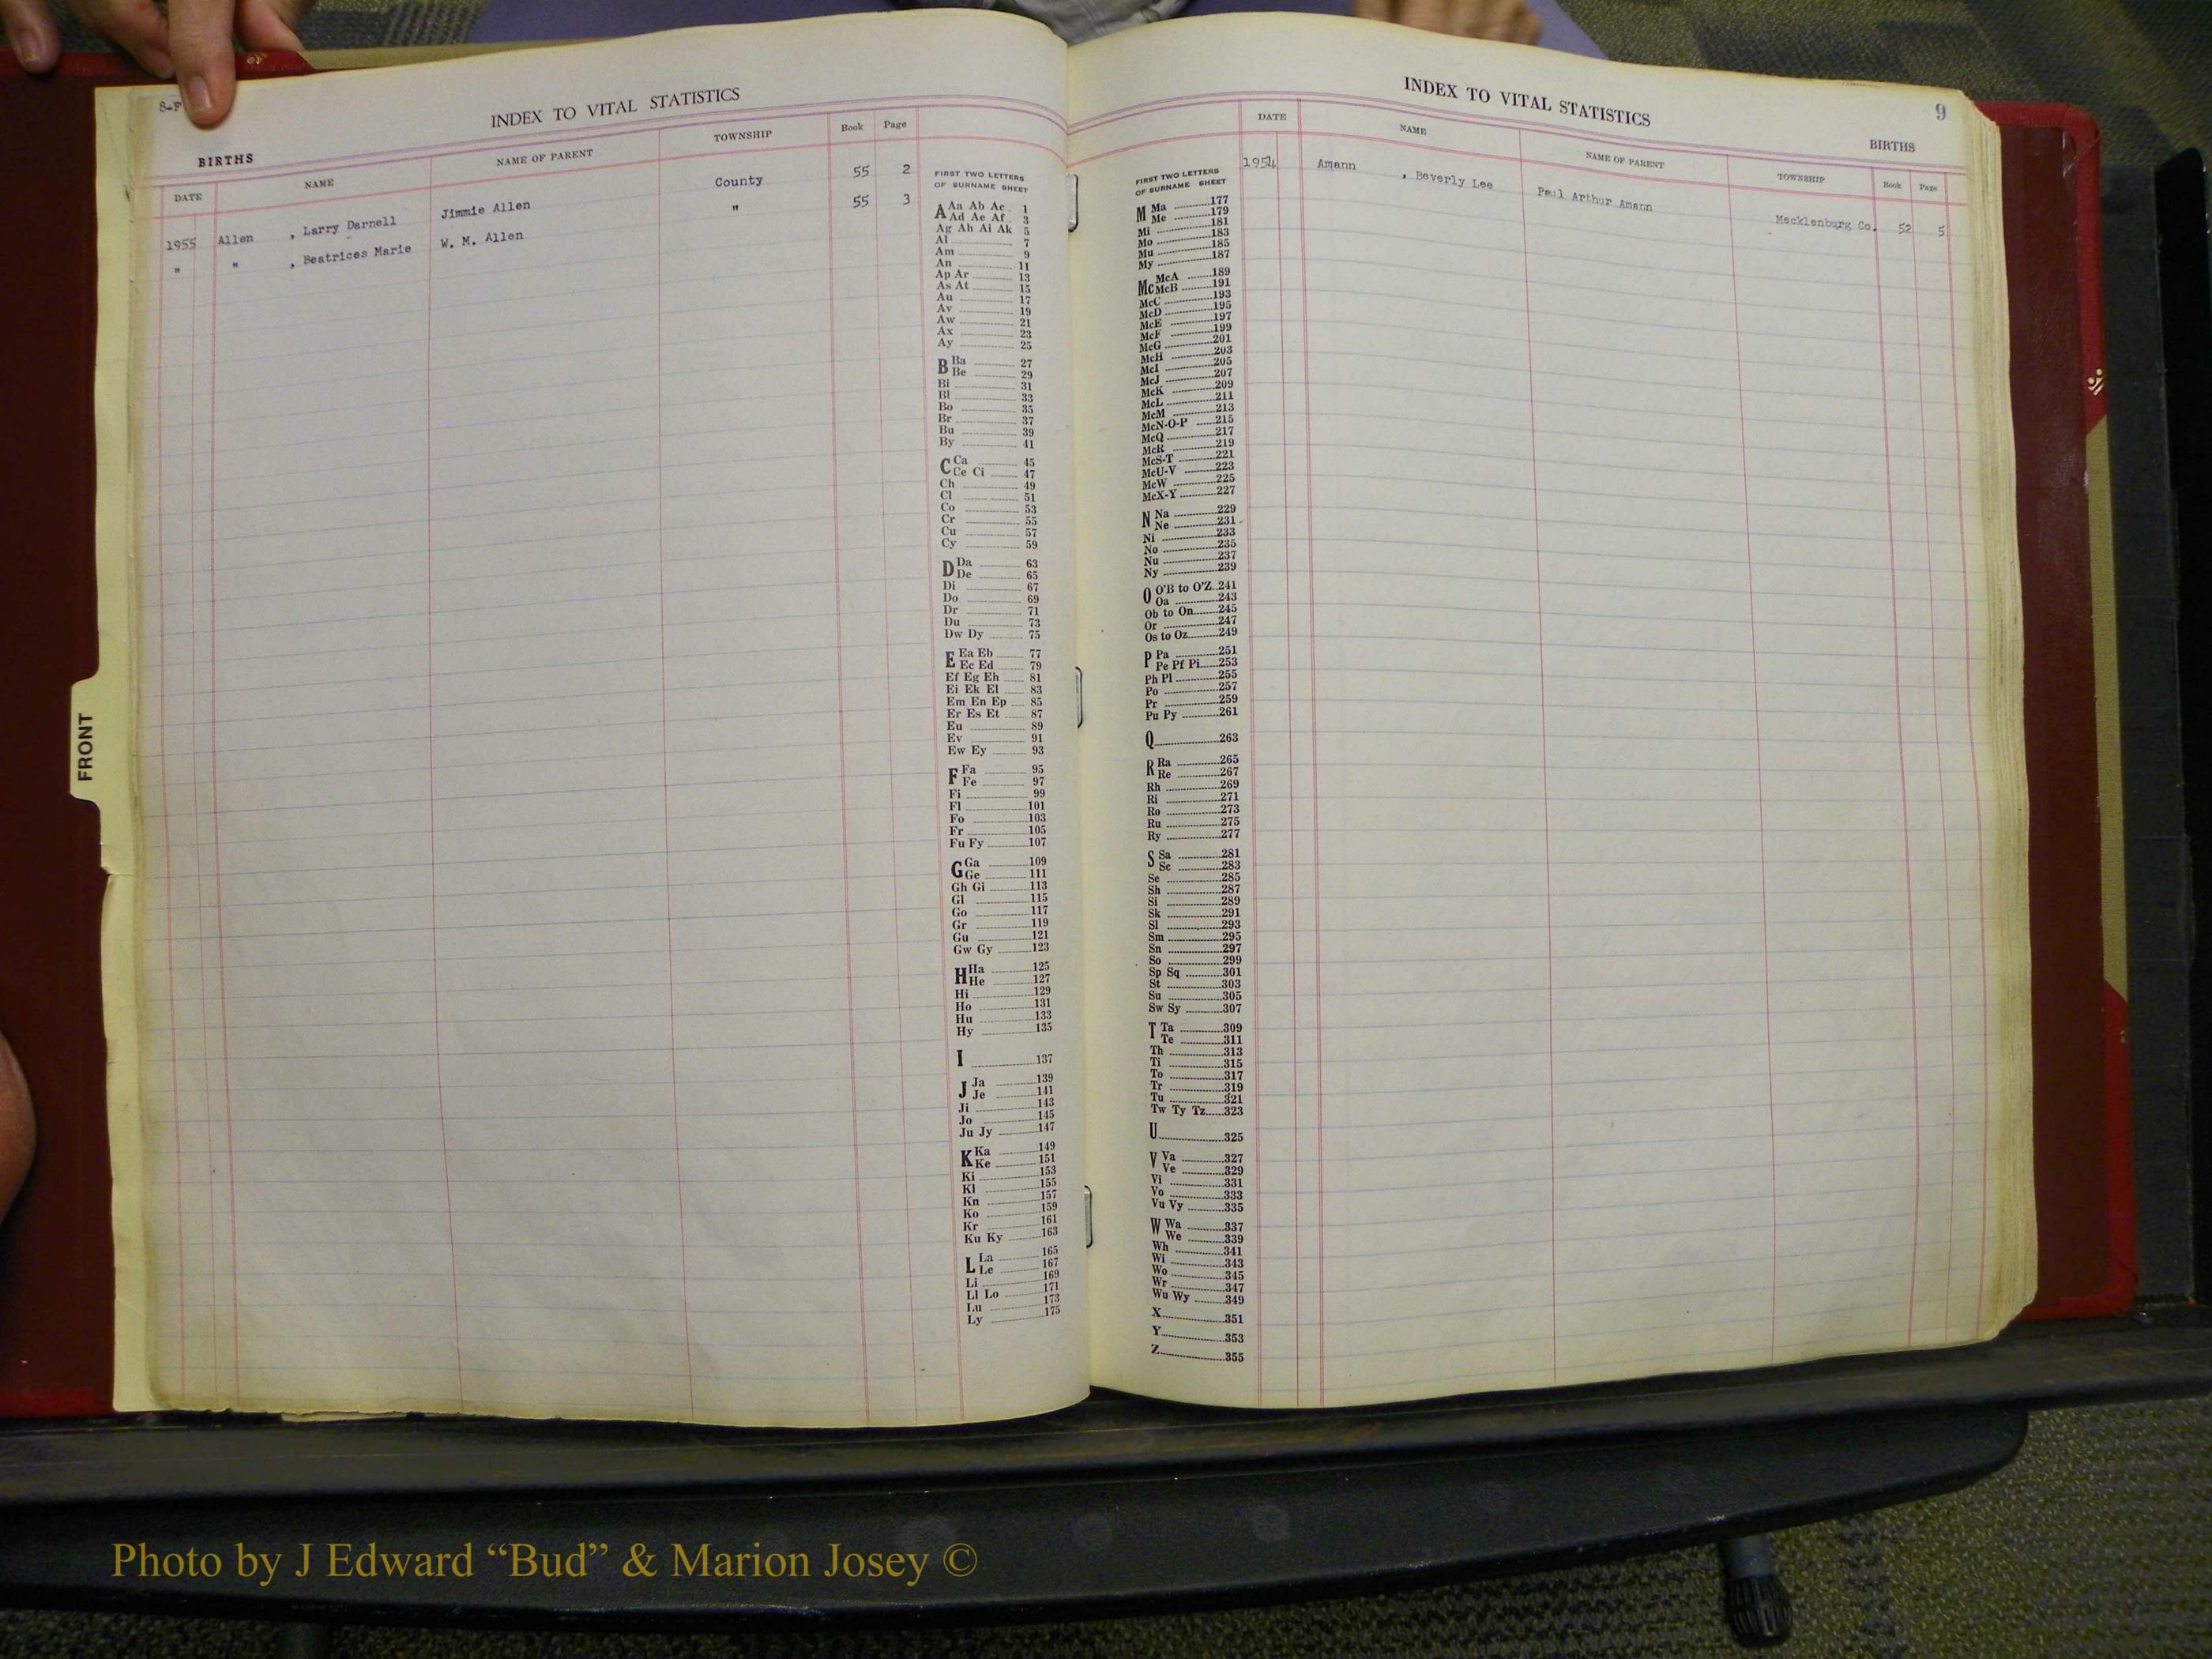 INDEX TO VITAL STATISTICS
BIRTHS
DATE NAME NAME OF PARENT TOWNSHIP Book Page
1955 Allen , Larry Darnell Jimmie Allen County 55 2
" " , Beatrices Marie W. M. Allen " 55 3
FIRST TWO LETTERS
OF SURNAME SHEET
A Aa Ab Ac 1
Ad Ae Af 3
Ag Ah Ai Ak 5
Al 7
Am 9
An 11
Ap Ar 13
As At 15
Au 17
Av 19
Aw 21
Ax 23
Ay 25
B Ba 27
Be 29
Bi 31
Bl 33
Bo 35
Br 37
Bu 39
By 41
C Ca 45
Ce Ci 47
Ch 49
Cl 51
Co 53
Cr 55
Cu 57
Cy 59
D Da 63
De 65
Di 67
Do 69
Dr 71
Du 73
Dw Dy 75
E Ea Eb 77
Ec Ed 79
Ef Eg Eh 81
Ei Ek El 83
Em En Ep 85
Er Es Et 87
Eu 89
Ev 91
Ew Ey 93
F Fa 95
Fe 97
Fi 99
Fl 101
Fo 103
Fr 105
Fu Fy 107
G Ga 109
Ge 111
Gh Gi 113
Gl 115
Go 117
Gr 119
Gu 121
Gw Gy 123
H Ha 125
He 127
Hi 129
Ho 131
Hu 133
Hy 135
I 137
J Ja 139
Je 141
Ji 143
Jo 145
Ju Jy 147
K Ka 149
Ke 151
Ki 153
Kl 155
Kn 157
Ko 159
Kr 161
Ku Ky 163
L La 165
Le 167
Li 169
Ll Lo 171
Lu 173
Ly 175
FRONT
INDEX TO VITAL STATISTICS 9
BIRTHS
DATE NAME NAME OF PARENT TOWNSHIP Book Page
1954 Amann , Beverly Lee Paul Arthur Amann Mecklenburg Co. 52 5
FIRST TWO LETTERS
OF SURNAME SHEET
M Ma 177
Me 179
Mi 181
Mo 183
Mu 185
My 187
Mc McA 189
McB 191
McC 193
McD 195
McE 197
McF 199
McG 201
McH 203
McI 205
McJ 207
McK 209
McL 211
McM 213
McN-O-P 215
McQ 217
McR 219
McS-T 221
McU-V 223
McW 225
McX-Y 227
N Na 229
Ne 231
Ni 233
No 235
Nu 237
Ny 239
O O'B to O'Z 241
Oa 243
Ob to On 245
Or 247
Os to Oz 249
P Pa 251
Pe Pf Pi 253
Ph Pl 255
Po 257
Pr 259
Pu Py 261
Q 263
R Ra 265
Re 267
Rh 269
Ri 271
Ro 273
Ru 275
Ry 277
S Sa 281
Sc 283
Se 285
Sh 287
Si 289
Sk 291
Sl 293
Sm 295
Sn 297
So 299
Sp Sq 301
St 303
Su 305
Sw Sy 307
T Ta 309
Te 311
Th 313
Ti 315
To 317
Tr 319
Tu 321
Tw Ty Tz 323
U 325
V Va 327
Ve 329
Vi 331
Vo 333
Vu Vy 335
W Wa 337
We 339
Wh 341
Wi 343
Wo 345
Wr 347
Wu Wy 349
X 351
Y 353
Z 355
Photo by J Edward “Bud” & Marion Josey ©